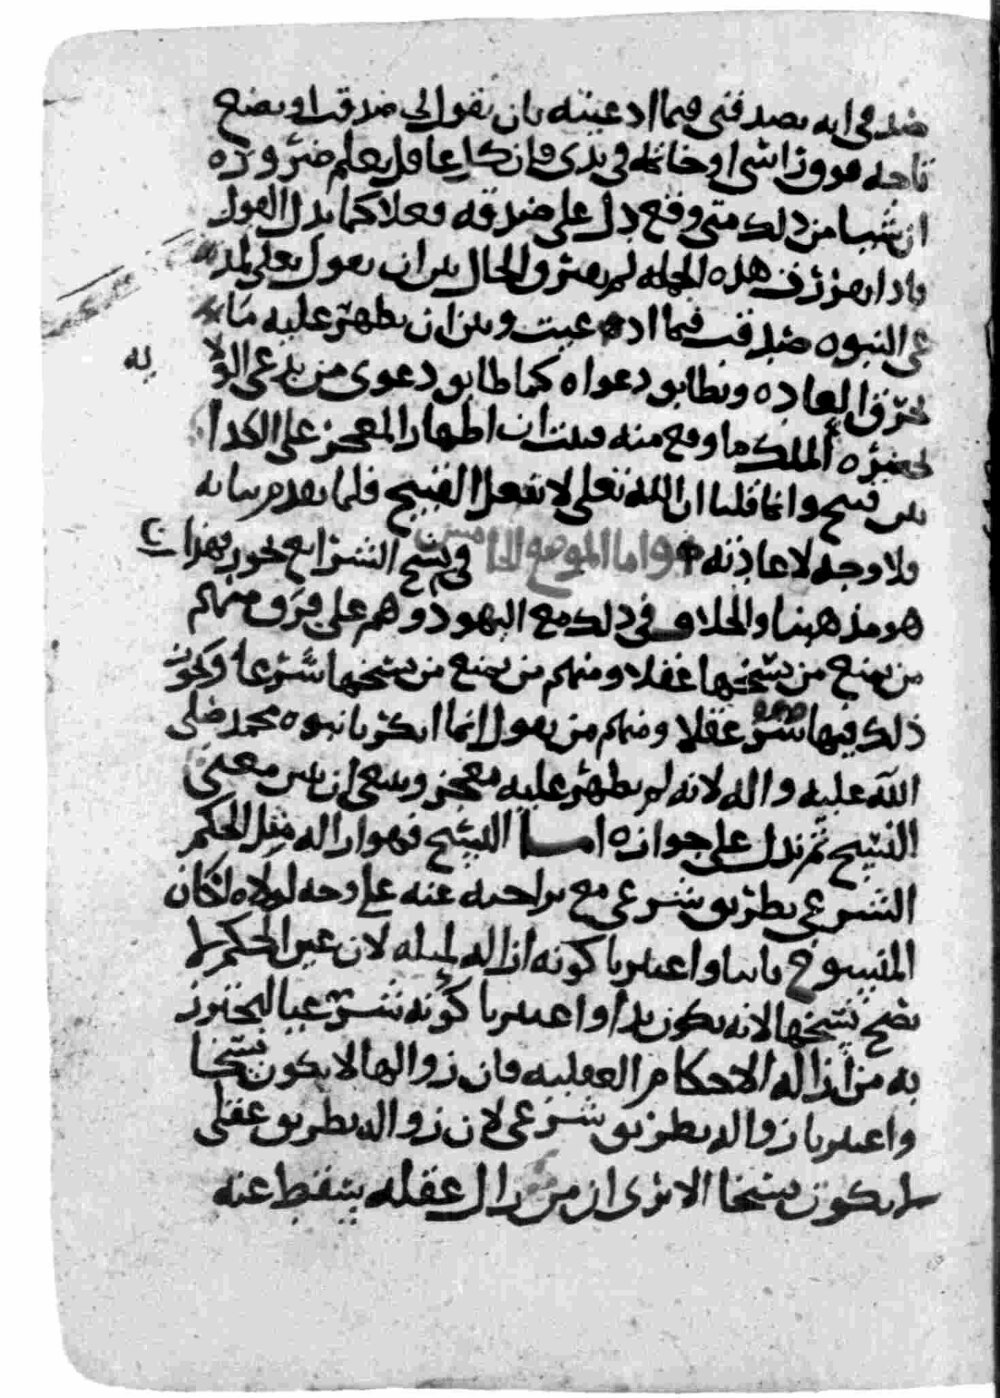 صدقي انه يصدقني فيما ادعيته بان يقول لي صدقت او يضع
تاجه فوق راسي او خاتمه في يدي فان كل عاقل يعلم ضروره
ان شيا من ذلك متى وقع دل على صدقه فعلا كما يدل القول
فاذا تقررت هذه الجمله لم يفترق الحال بين ان يقول تعلى لمدع
عي النبوه صدقت فيما ادعيت وبين ان يظهر عليه ما
يخرق العاده ويطابق دعواه كما طابق دعوى من يدعي الولا
يه
بحضره الملك ما وقع منه فثبت ان اظهار المعجز على الكذا
بين قبيح وانما قلنا ان الله تعلى لا يفعل القبيح فلما تقدم بيانه
فلا وجه لاعادته واما الموضع الخامس في نسخ الشرائع نحو فهذا
هو مذهبنا والخلاف في ذلك مع اليهود وهم على فرق منهم
من يمنع من نسخها عقلا ومنهم من يمنع من نسخها شرعا ويجوز
ذلك فيها عقلا ومنهم من يقول انما انكر نا نبوه محمد صلى
الله عليه واله لانه لم يظهر عليه معجز وينبغي ان نبين معنى
النسخ ثم ندل على جوازه اما النسخ فهو ازاله مثل الحكم
الشرعي بطريق شرعي مع تراخيه عنه على وجه لولاه لكان
المنسوخ ثابتا واعتبرنا كونه ازاله لمثله لان عين الحكم لا
يصح نسخها لانه يكون بدا واعتبرنا كونه شرعيا لنحترز
به من ازاله الاحكام العقليه فان زوالها لا يكون نسخا
واعتبرنا زواله بطريق شرعي لان زواله بطريق عقلي
لا يكون نسخا الا ترى ان من زال عقله يسقط عنه